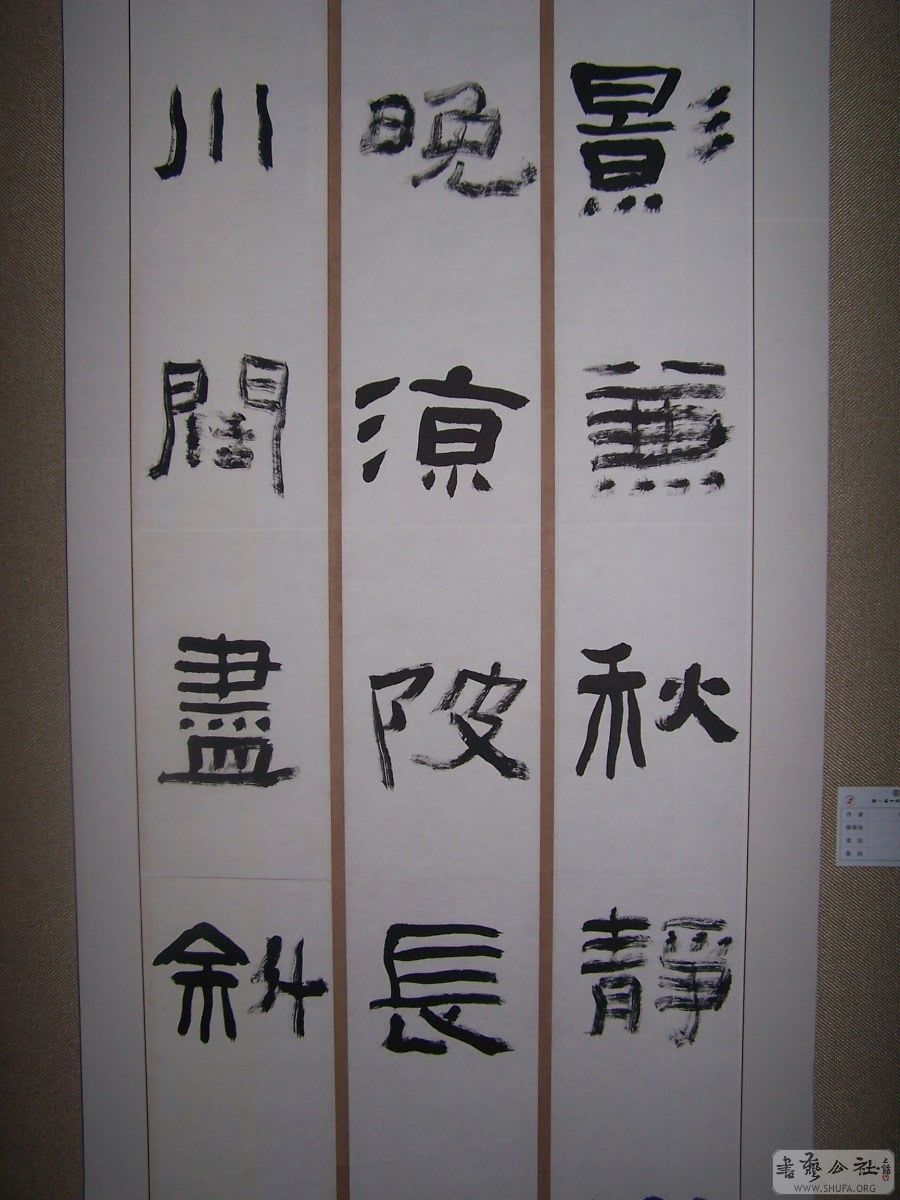 影兼秋靜
晚涼陂長
川闊盡斜
作 者
書藝公社
WWW.SHUFA.ORG